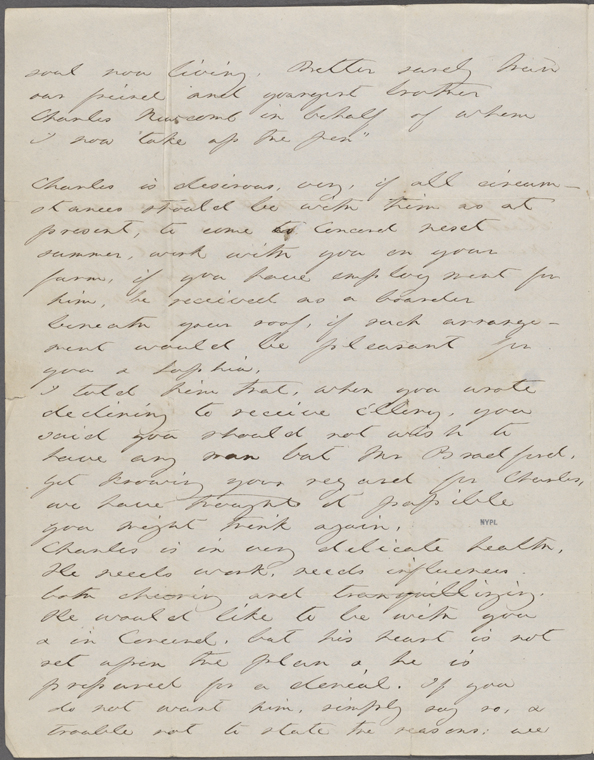 soul now living. Better surely than
our friend and youngest brother
Charles Newcomb in behalf of whom
I now take up the pen"
Charles is desirous, very, if all circum-
stances should be with him as at
present, to come to Concord next
summer, work with you on your
farm, if you have employment for
him, be received as a boarder
beneath your roof, if such arrange-
ment would be pleasant for
you & Sophia.
I told him that, when you wrote
declining to receive Ellery, you
said you should not wish to
have any man but Mr Bradford.
Yet knowing your regard for Charles,
we have thought it possible
you might think again.
NYPL
Charles is in very delicate health.
He needs work, needs influences
both cheering and tranquillizing.
He would like to be with you
& in Concord, but his heart is not
set upon the plan & he is
prepared for a denial. If you
do not want him, simply say so, &
trouble not to state the reasons: we